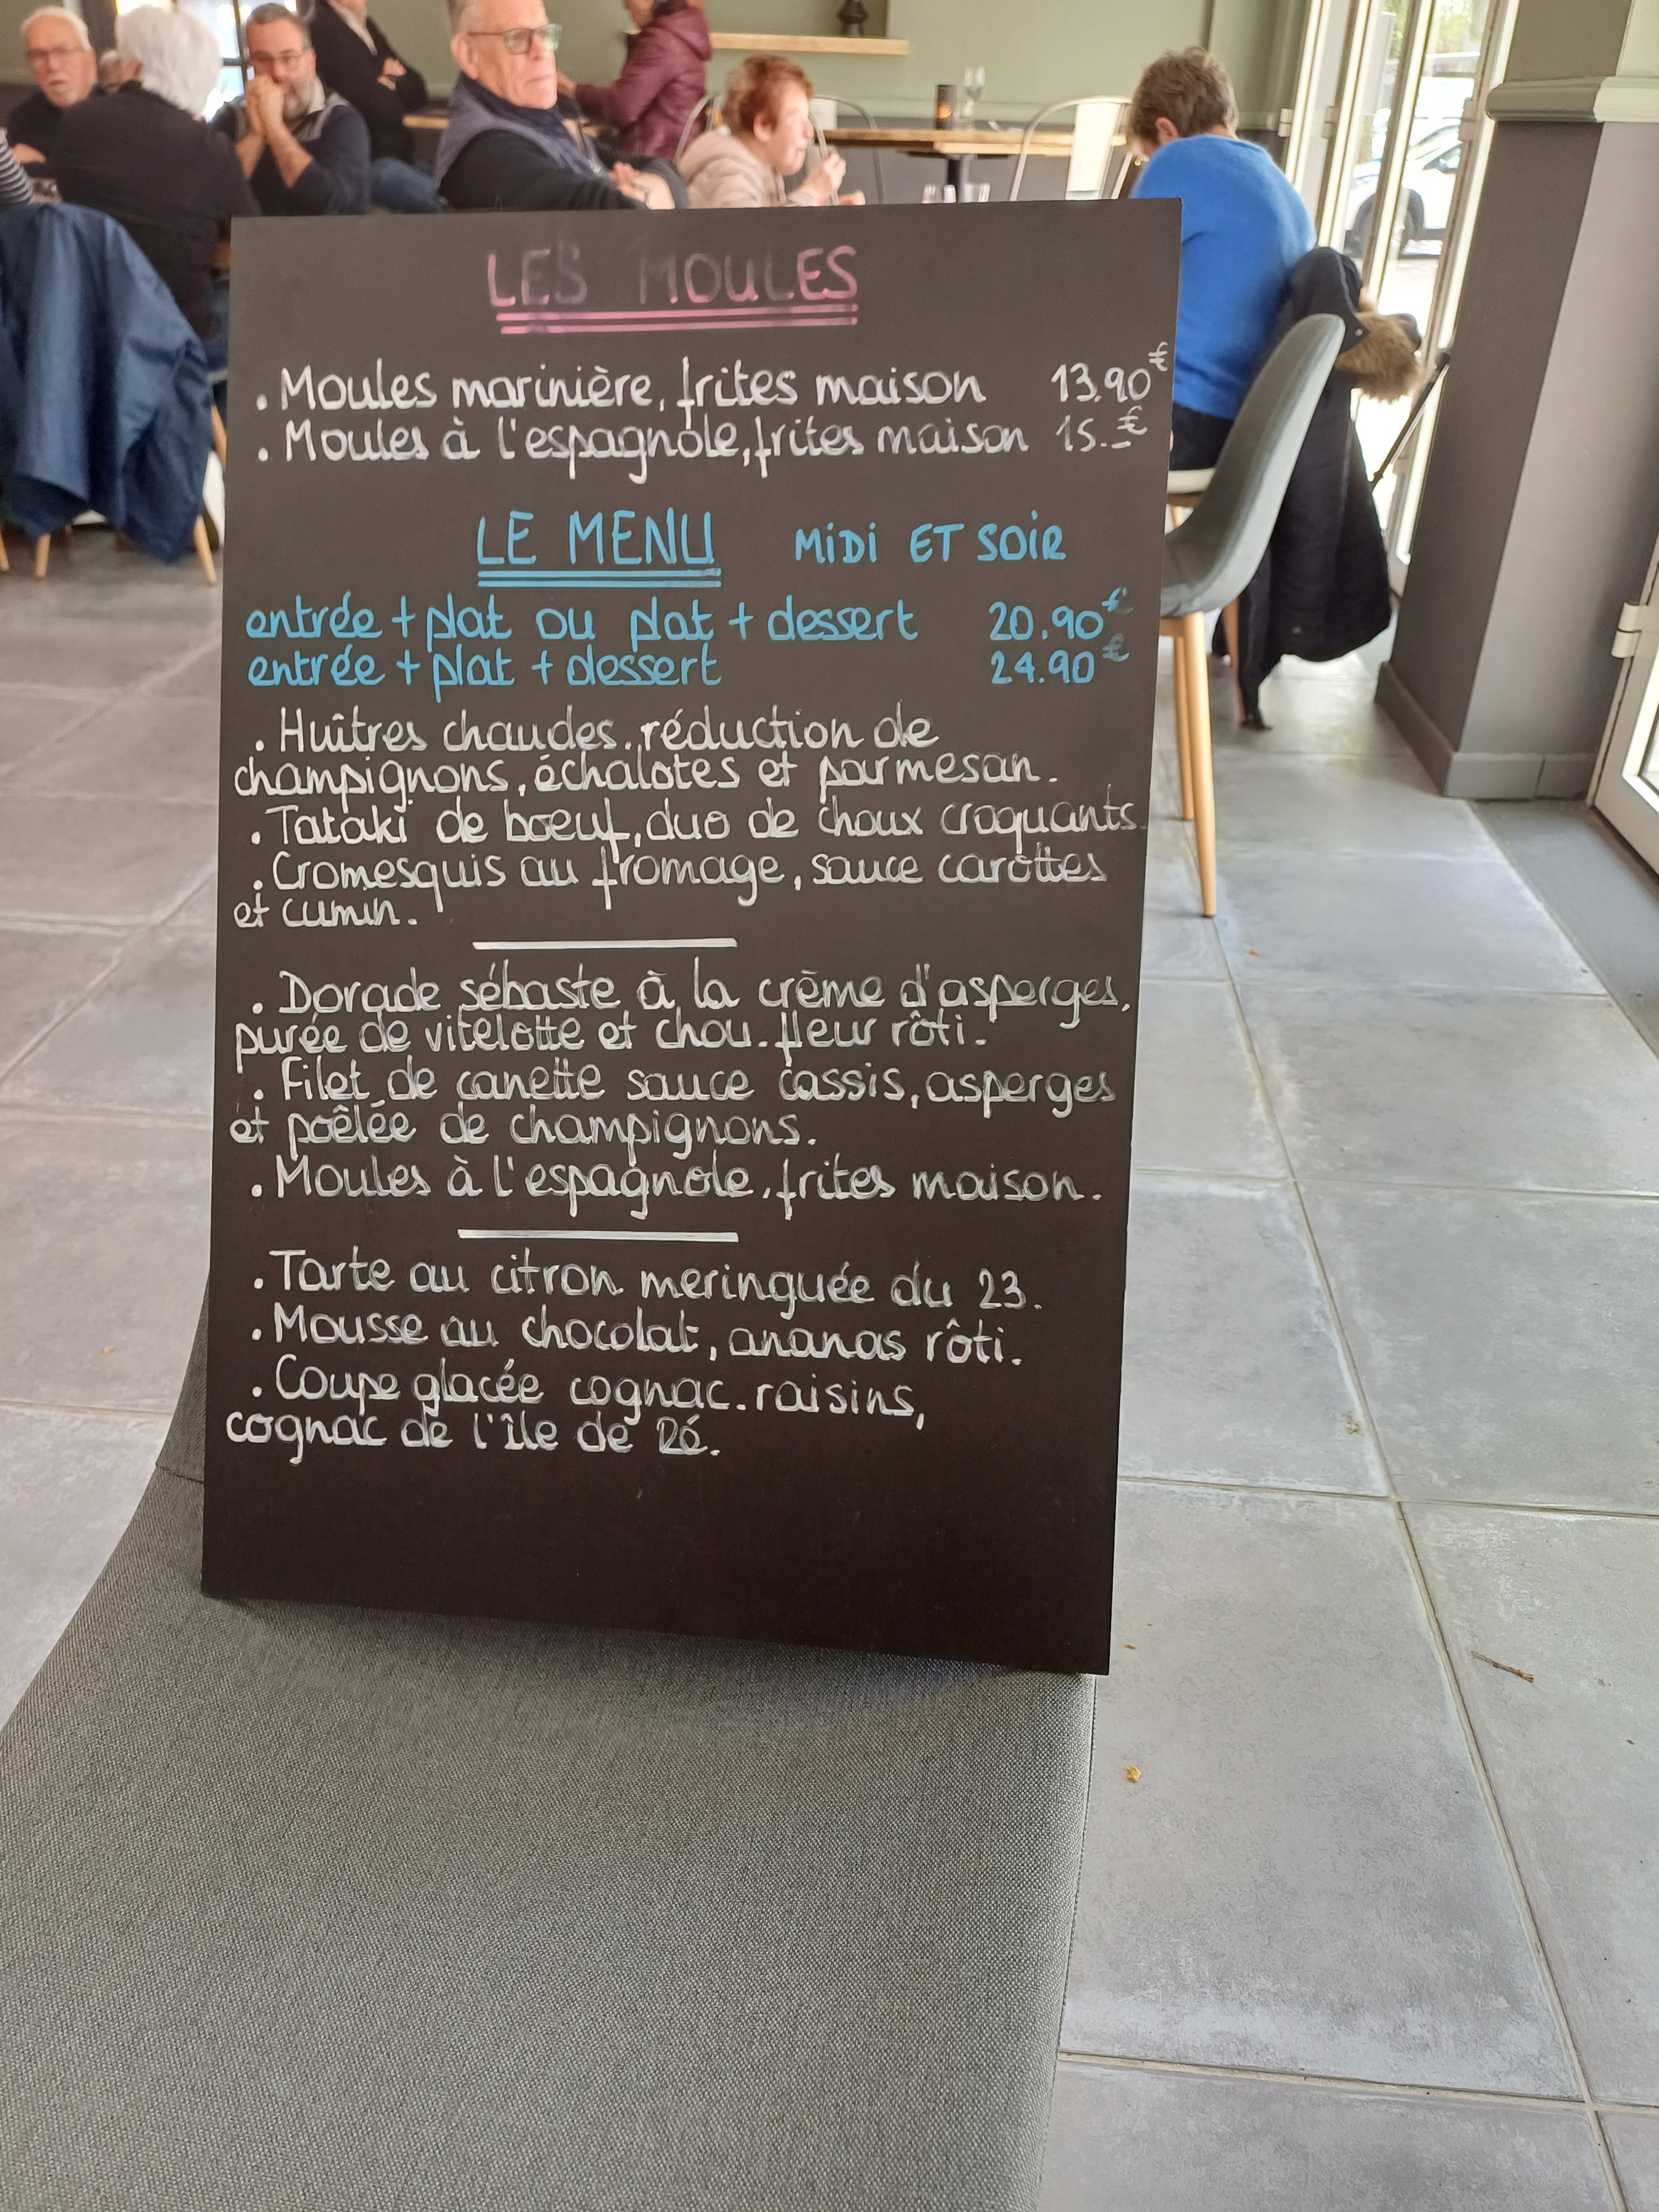 LES MOULES
. Moules marinière, frites maison 13.90€
. Moules à l'espagnole, frites maison 15.-€
LE MENU MiDi ET SOiR
entrée + plat ou plat + dessert 20.90€
entrée + plat + dessert 24.90€
. Huîtres chaudes, réduction de
champignons, échalotes et parmesan.
. Tataki de boeuf, duo de choux croquants.
. Cromesquis au fromage, sauce carottes
et cumin.
. Dorade sébaste à la crème d'asperges,
purée de vitelotte et chou-fleur rôti.
. Filet de canette sauce cassis, asperges
et poêlée de champignons.
. Moules à l'espagnole, frites maison.
. Tarte au citron meringuée du 23.
. Mousse au chocolat, ananas rôti.
. Coupe glacée cognac-raisins,
cognac de l'île de Ré.